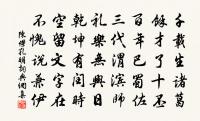 千載生諸葛
餘才了十丕
百年巴蜀佐
三代渭濱師
禮樂無興日
乾坤有閏時
空留文字在
不愧說兼伊
陳櫟孔明詞典網集